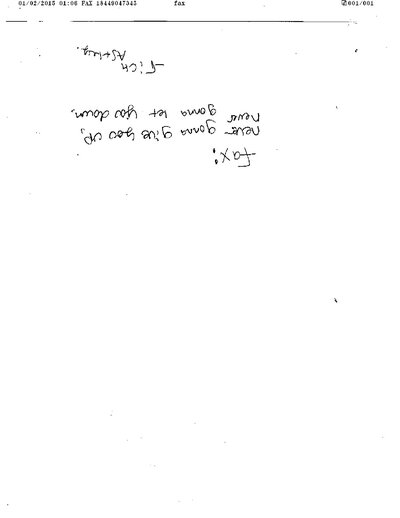 01/02/2015 01:06 FAX 18449047345 fax 001/001
Fax:
never gonna give you up,
never gonna let you down.
-Rick
Astley.